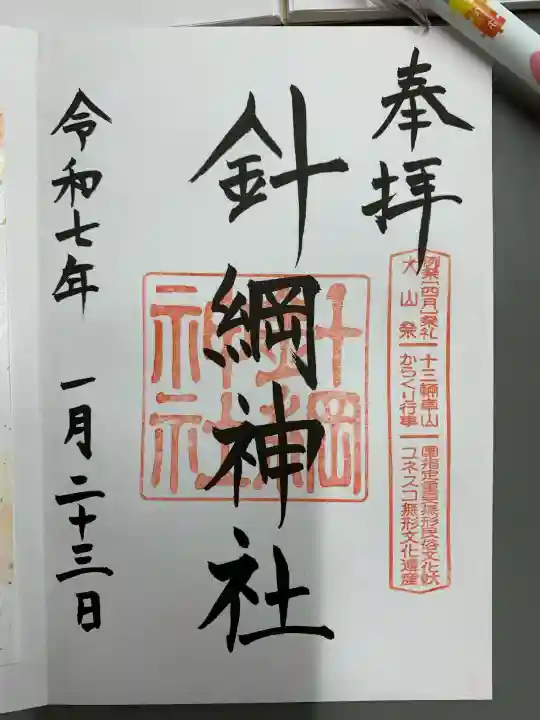 奉拝
例祭[四月]祭礼 十三輌車山 國指定重要無形民俗文化財
犬山祭 からくり行事 ユネスコ無形文化遺産
針綱神社
針綱
神社
令和七年 一月二十三日